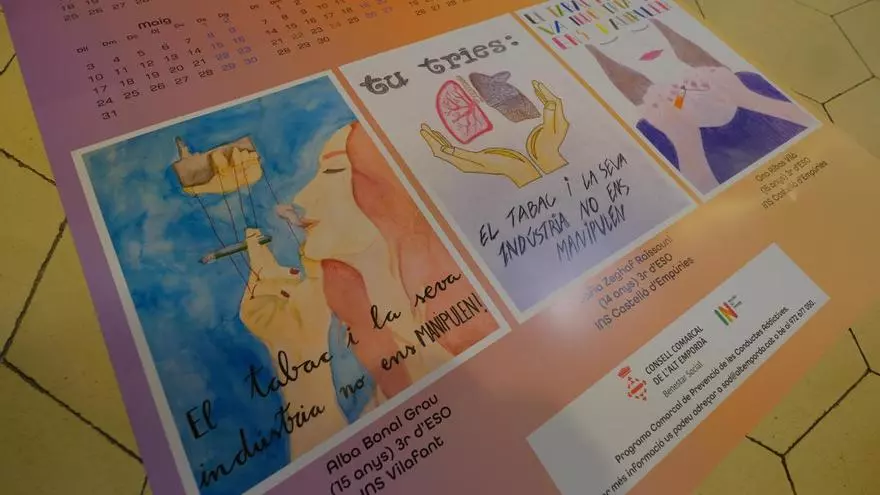 Maig
Dll Dm Dc Dj Dv Ds Dg
3 4 5 6 7 8 9
10 11 12 13 14 15 16
17 18 19 20 21 22 23
24 25 26 27 28 29 30
31
El tabac i la seva
indústria no ens MANIPULEN!
Alba Bonal Grau
(15 anys) 3r d'ESO
INS Vilafant
tu tries:
EL TABAC I LA SEVA
INDÚSTRIA NO ENS
MANIPULEN
Zeghaf Raissouni
(14 anys) 3r d'ESO
INS Castelló d'Empúries
Ona Ribas Vila
(15 anys) 3r d'ESO
INS Castelló d'Empúries
CONSELL COMARCAL
DE L'ALT EMPORDÀ
Benestar Social
Programa Comarcal de Prevenció de les Conductes Addictives.
er més informació us podeu adreçar a sad@altemporda.cat o bé al 972 677 050.